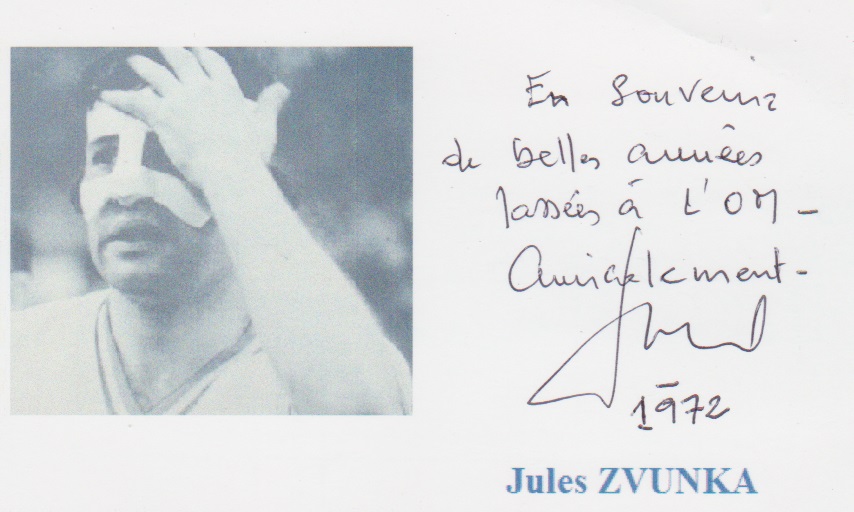 En souvenir
de belles années
passées à l'OM -
Amicalement -
1972
Jules ZVUNKA